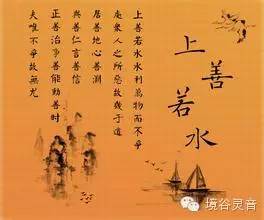 上善若水
上善若水水利萬物而不爭
處衆人之所惡故幾于道
居善地心善淵
與善仁言善信
正善治事善能動善时
夫唯不爭故無尤
境谷灵音